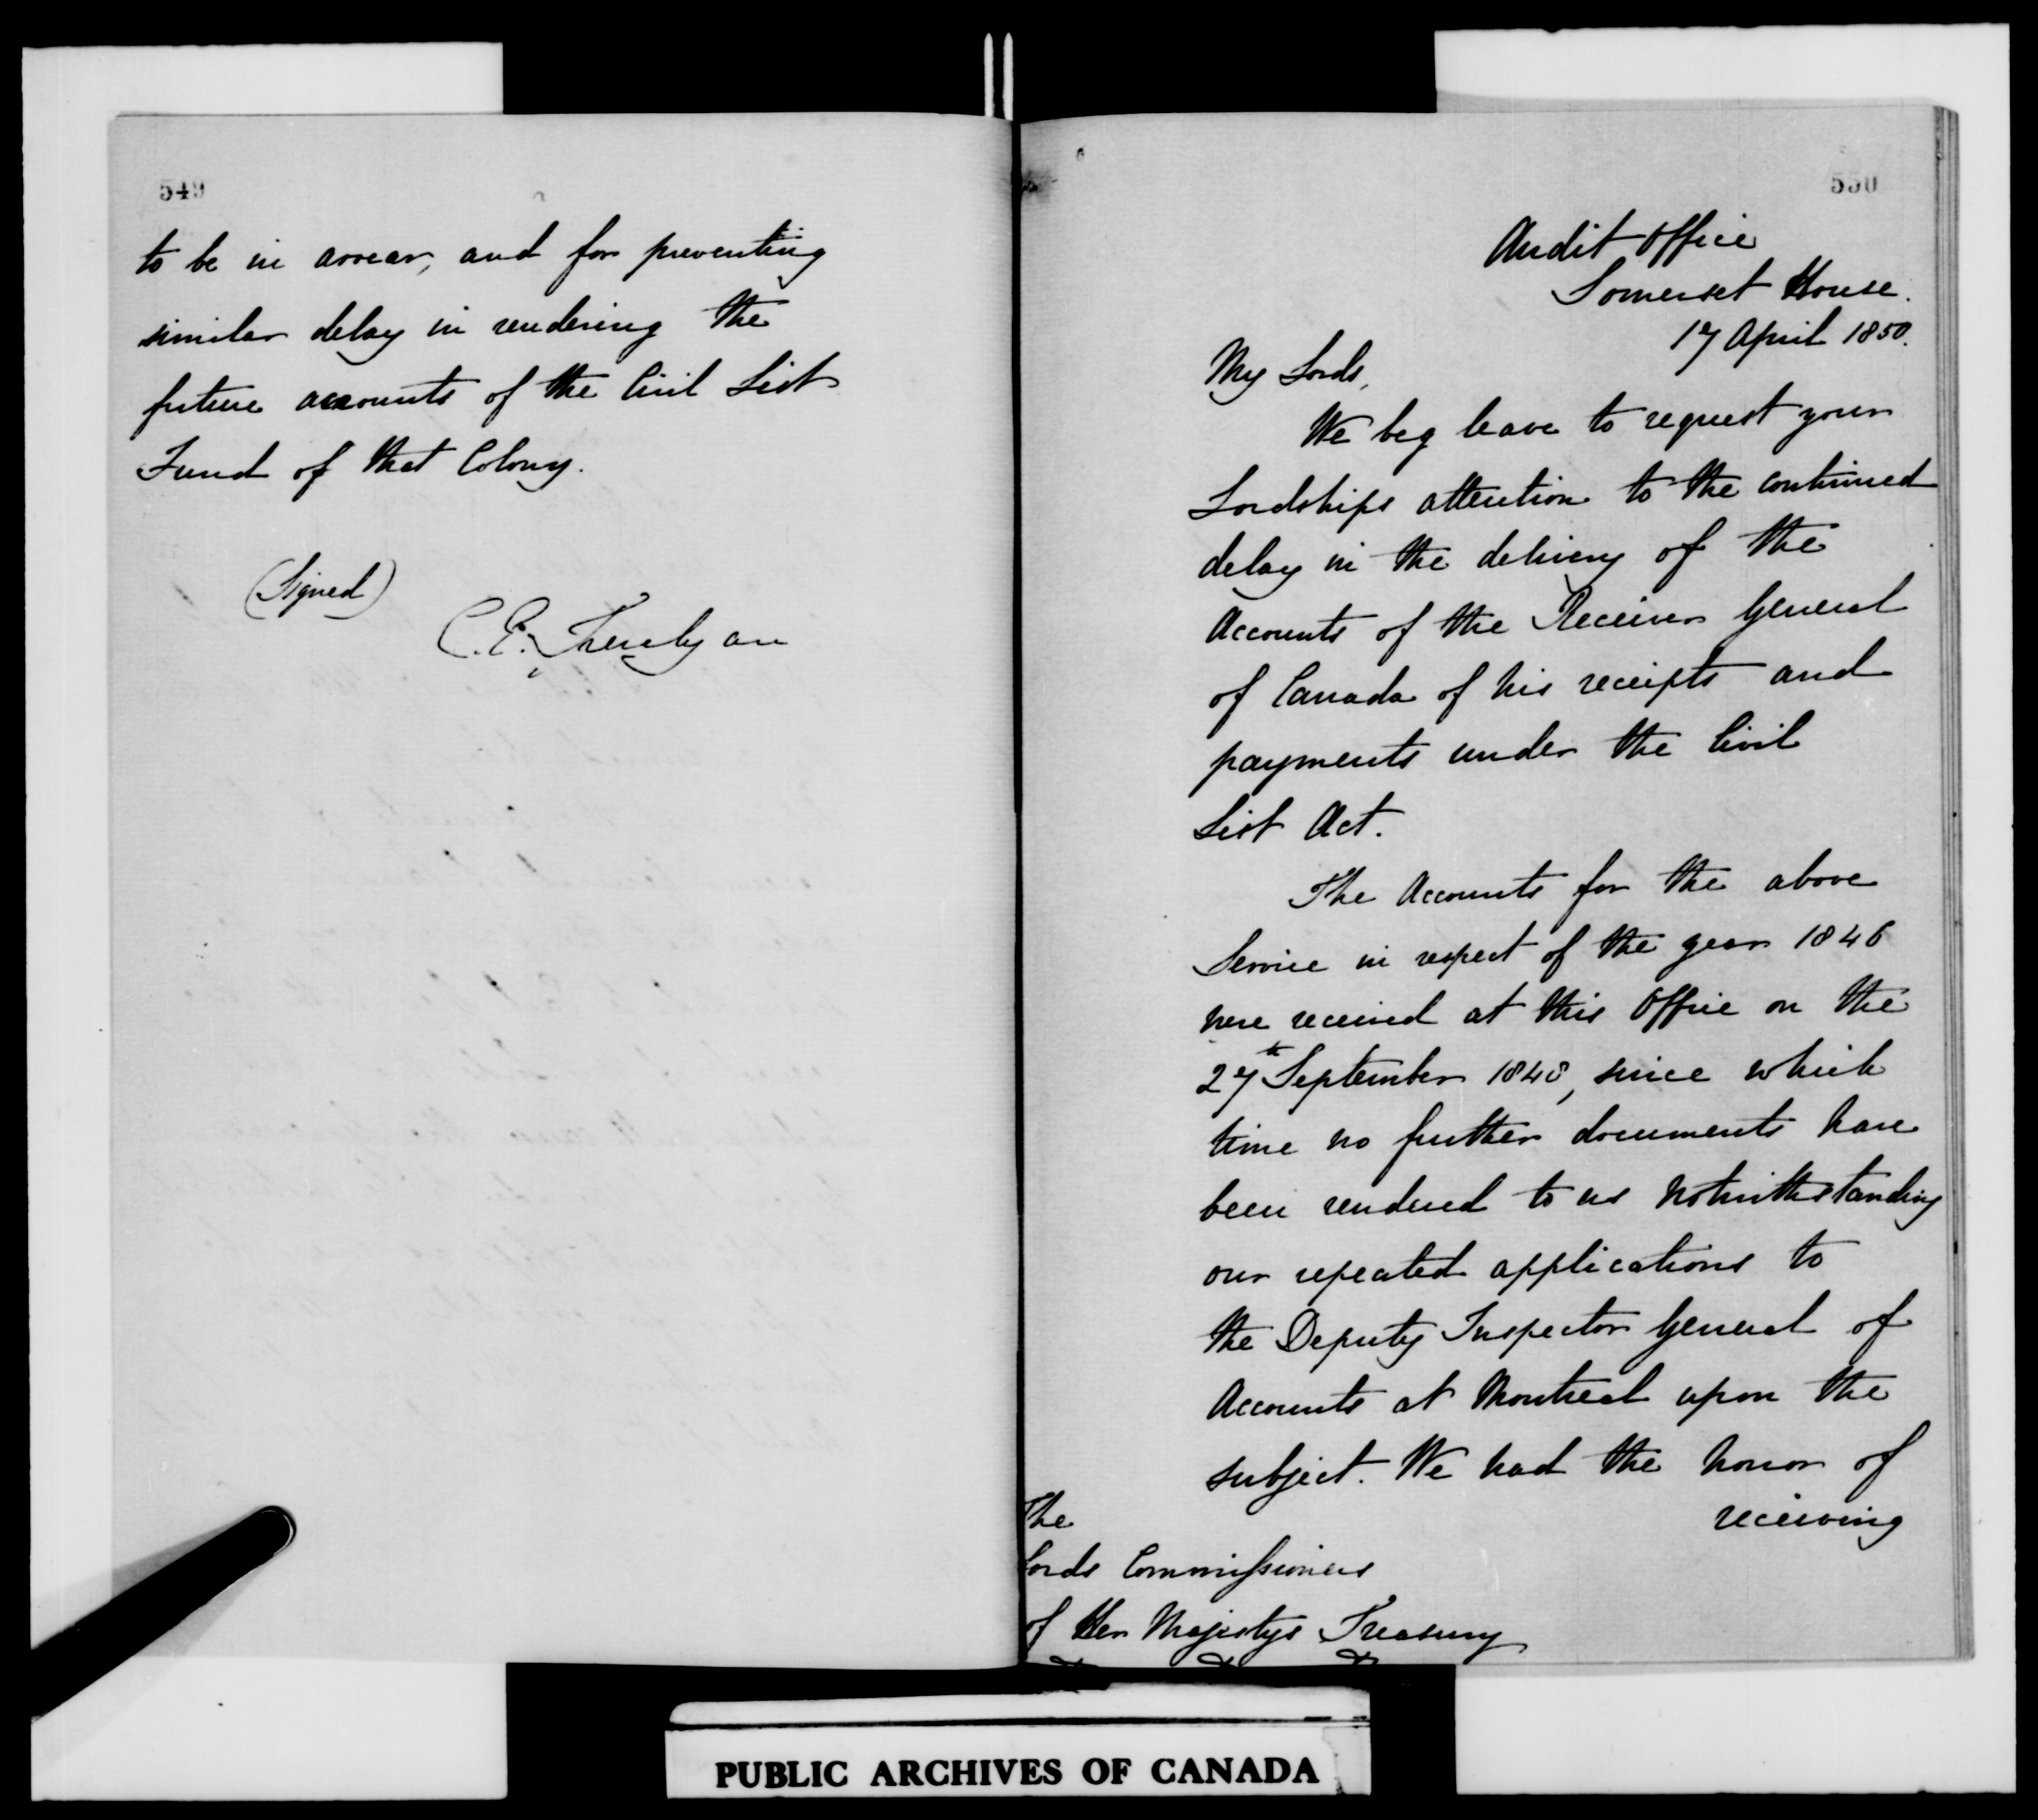 549
to be in arrear, and for preventing
similar delay in rendering the
future accounts of the Civil List
Fund of that Colony.
(Signed)
C. E. Trevelyan
550
Audit Office
Somerset House.
17 April 1850.
My Lords,
We beg leave to request your
Lordships attention to the continued
delay in the delivery of the
Accounts of the Receiver General
of Canada of his receipts and
payments under the Civil
List Act.
The Accounts for the above
Service in respect of the year 1846
were received at this Office on the
27th September 1848, since which
time no further documents have
been rendered to us notwithstanding
our repeated applications to
the Deputy Inspector General of
Accounts at Montreal upon the
subject. We had the honor of
receiving
The
Lords Commissioners
of Her Majestys Treasury
PUBLIC ARCHIVES OF CANADA